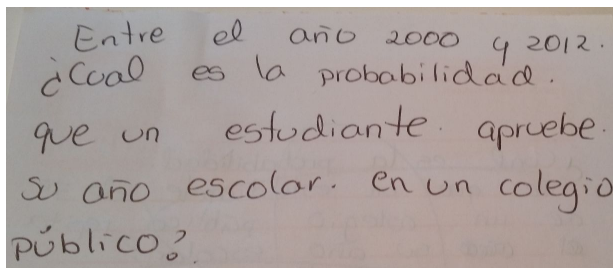 Entre el año 2000 y 2012.
¿Cual es la probabilidad.
que un estudiante. apruebe.
su año escolar. en un colegio
público?